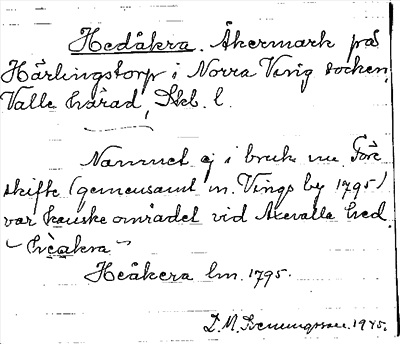 Hedåkra. Åkermark på
Härlingstorp i Norra Ving socken,
Valle härad, Skb. l.
Namnet ej i bruk nu. Före
skifte (gemensamt m. Vings by 1795)
var kanske området vid Axevalle hed.
Heåkera lm. 1795.
D. M. 1945.